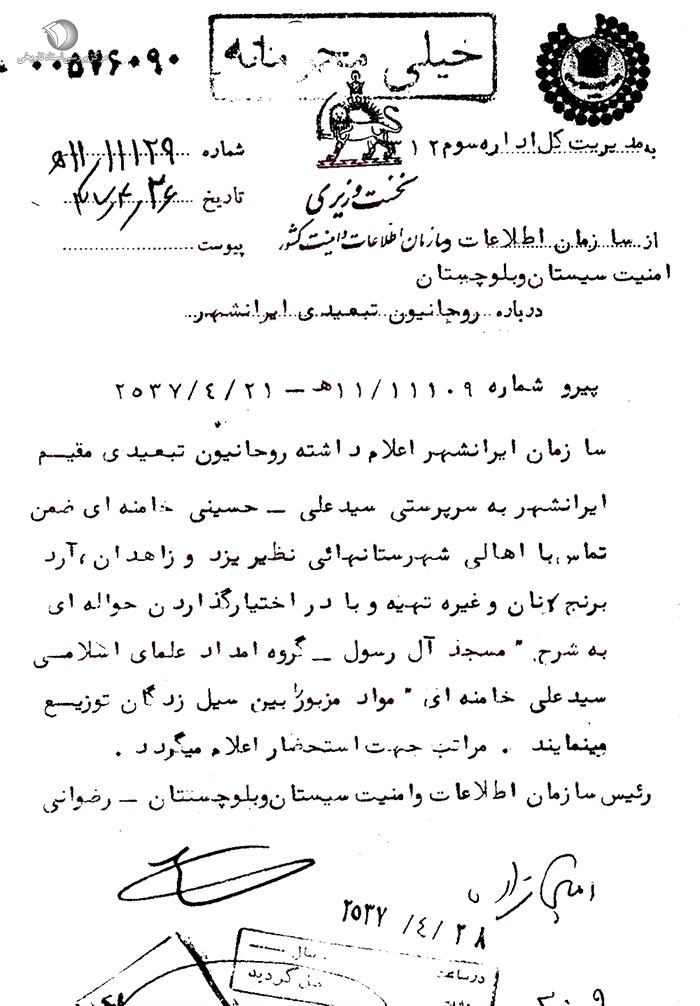 مرکز بررسی اسناد تاریخی
۰۰۵۷۶۰۹۰
خیلی محرمانه
به مدیریت کل اداره سوم ۳۱۲
شماره ۱۱/۱۱۱۲۹ه
نخست وزیری
تاریخ ۳۷/۴/۲۶
سازمان اطلاعات و امنیت کشور
از سازمان اطلاعات و
پیوست
امنیت سیستان وبلوچستان
درباره روحانیون تبعیدی ایرانشهر
پیرو شماره ۱۱/۱۱۱۰۹ه – ۲۵۳۷/٤/۲۱
سازمان ایرانشهر اعلام داشته روحانیون تبعیدی مقیم
ایرانشهر به سرپرستی سیدعلی – حسینی خامنه ای ضمن
تماس با اهالی شهرستانهائی نظیر یزد و زاهدان، آرد
برنج نان و غیره تهیه و با در اختیارگذاردن حواله ای
به شرح " مسجد آل رسول – گروه امداد علمای اسلامی
سیدعلی خامنه ای " مواد مزبور را بین سیل زدگان توزیع
مینمایند . مراتب جهت استحضار اعلام میگردد .
رئیس سازمان اطلاعات وامنیت سیستان وبلوچستان – رضوانی
۲۵۳۷/٤/۲۸
در ساعت
سال
گردید